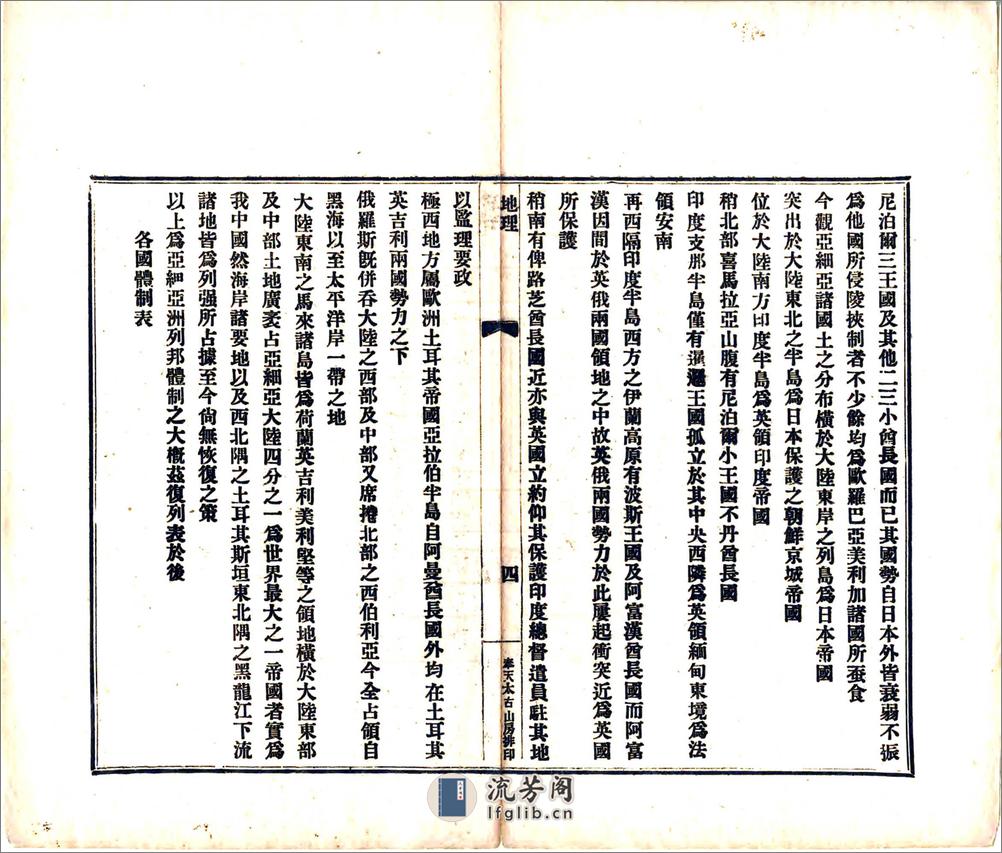 尼泊爾三王國及其他二三小酋長國而已其國勢自日本外皆衰弱不振
爲他國所侵陵挾制者不少餘均爲歐羅巴亞美利加諸國所蚕食
今觀亞細亞諸國土之分布橫於大陸東岸之列島爲日本帝國
突出於大陸東北之半島爲日本保護之朝鮮京城帝國
位於大陸南方印度半島爲英領印度帝國
稍北部喜馬拉亞山腹有尼泊爾小王國不丹酋長國
印度支那半島僅有暹邏王國孤立於其中央西隣爲英領緬甸東境爲法
領安南
再西隔印度半島西方之伊蘭高原有波斯王國及阿富漢酋長國而阿富
漢因間於英俄兩國領地之中故英俄兩國勢力於此屢起衝突近爲英國
所保護
稍南有俾路芝酋長國近亦與英國立約仰其保護印度總督遣員駐其地
地理
四
奉天太古山房排印
以監理要政
極西地方屬歐洲土耳其帝國亞拉伯半島自阿曼酋長國外均在土耳其
英吉利兩國勢力之下
俄羅斯既併吞大陸之西部及中部又席捲北部之西伯利亞今全占領自
黑海以至太平洋岸一帶之地
大陸東南之馬來諸島皆爲荷蘭英吉利美利堅等之領地橫於大陸東部
及中部土地廣袤占亞細亞大陸四分之一爲世界最大之一帝國者實爲
我中國然海岸諸要地以及西北隅之土耳其斯垣東北隅之黑龍江下流
諸地皆爲列强所占據至今尙無恢復之策
以上爲亞細亞洲列邦體制之大槪茲復列表於後
各國體制表
流芳阁
lfglib.cn